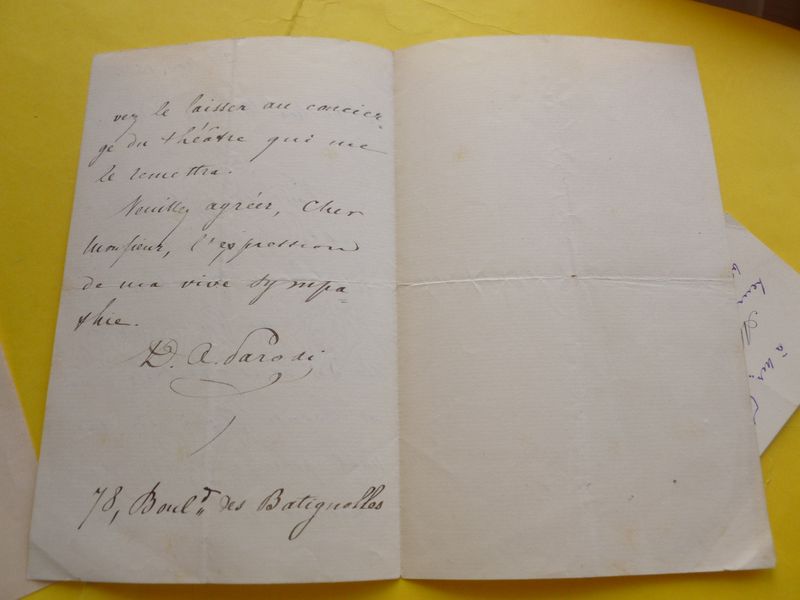 vez le laisser au concier-
ge du théâtre qui me
le remettra.
Veuillez agréer, Cher
Monsieur, l'expression
de ma vive sympa=
thie.
D. A. Parodi
78, Boul.d des Batignolles
à